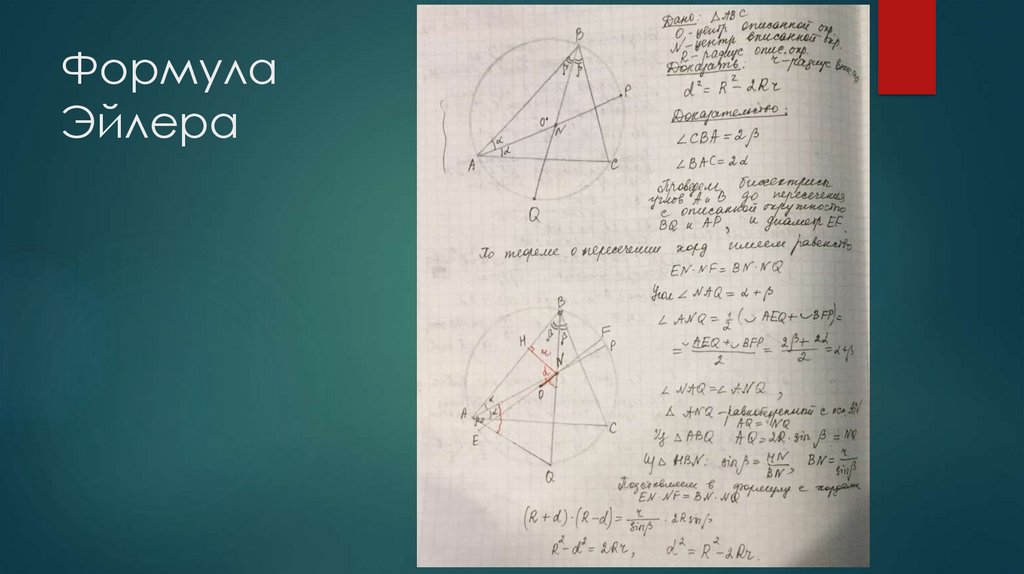 Формула
Эйлера
B
β β
P
O
N
α
α
A
C
Q
Дано: △ABC
O - центр описанной окр.
N - центр вписанной окр.
R - радиус опис. окр.
r - радиус
Доказать:
d² = R² - 2Rr
Доказательство:
∠CBA = 2β
∠BAC = 2α
Проведем биссектрисы
углов A и B до пересечения
с описанной окружностью
BQ и AP, и диаметр EF.
По теореме о пересечении хорд имеем равенство
EN·NF = BN·NQ
Угол ∠NAQ = α + β
∠ANQ = 1/2 (◡AEQ + ◡BFP) =
= (◡AEQ + ◡BFP)/2 = (2β + 2α)/2 = α + β
∠NAQ = ∠ANQ,
△ANQ - равнобедренный с осн. AN
AQ = NQ
Из △ABQ AQ = 2R·sin β = NQ
Из △HBN: sin β = HN/BN, BN = r/sin β
Подставляем в формулу с хордами
EN·NF = BN·NQ
(R + d)·(R - d) = r/sin β · 2R sin β
R² - d² = 2Rr, d² = R² - 2Rr.
B
β β
H
F
P
r
N
d
O
α
α
A
E
C
Q